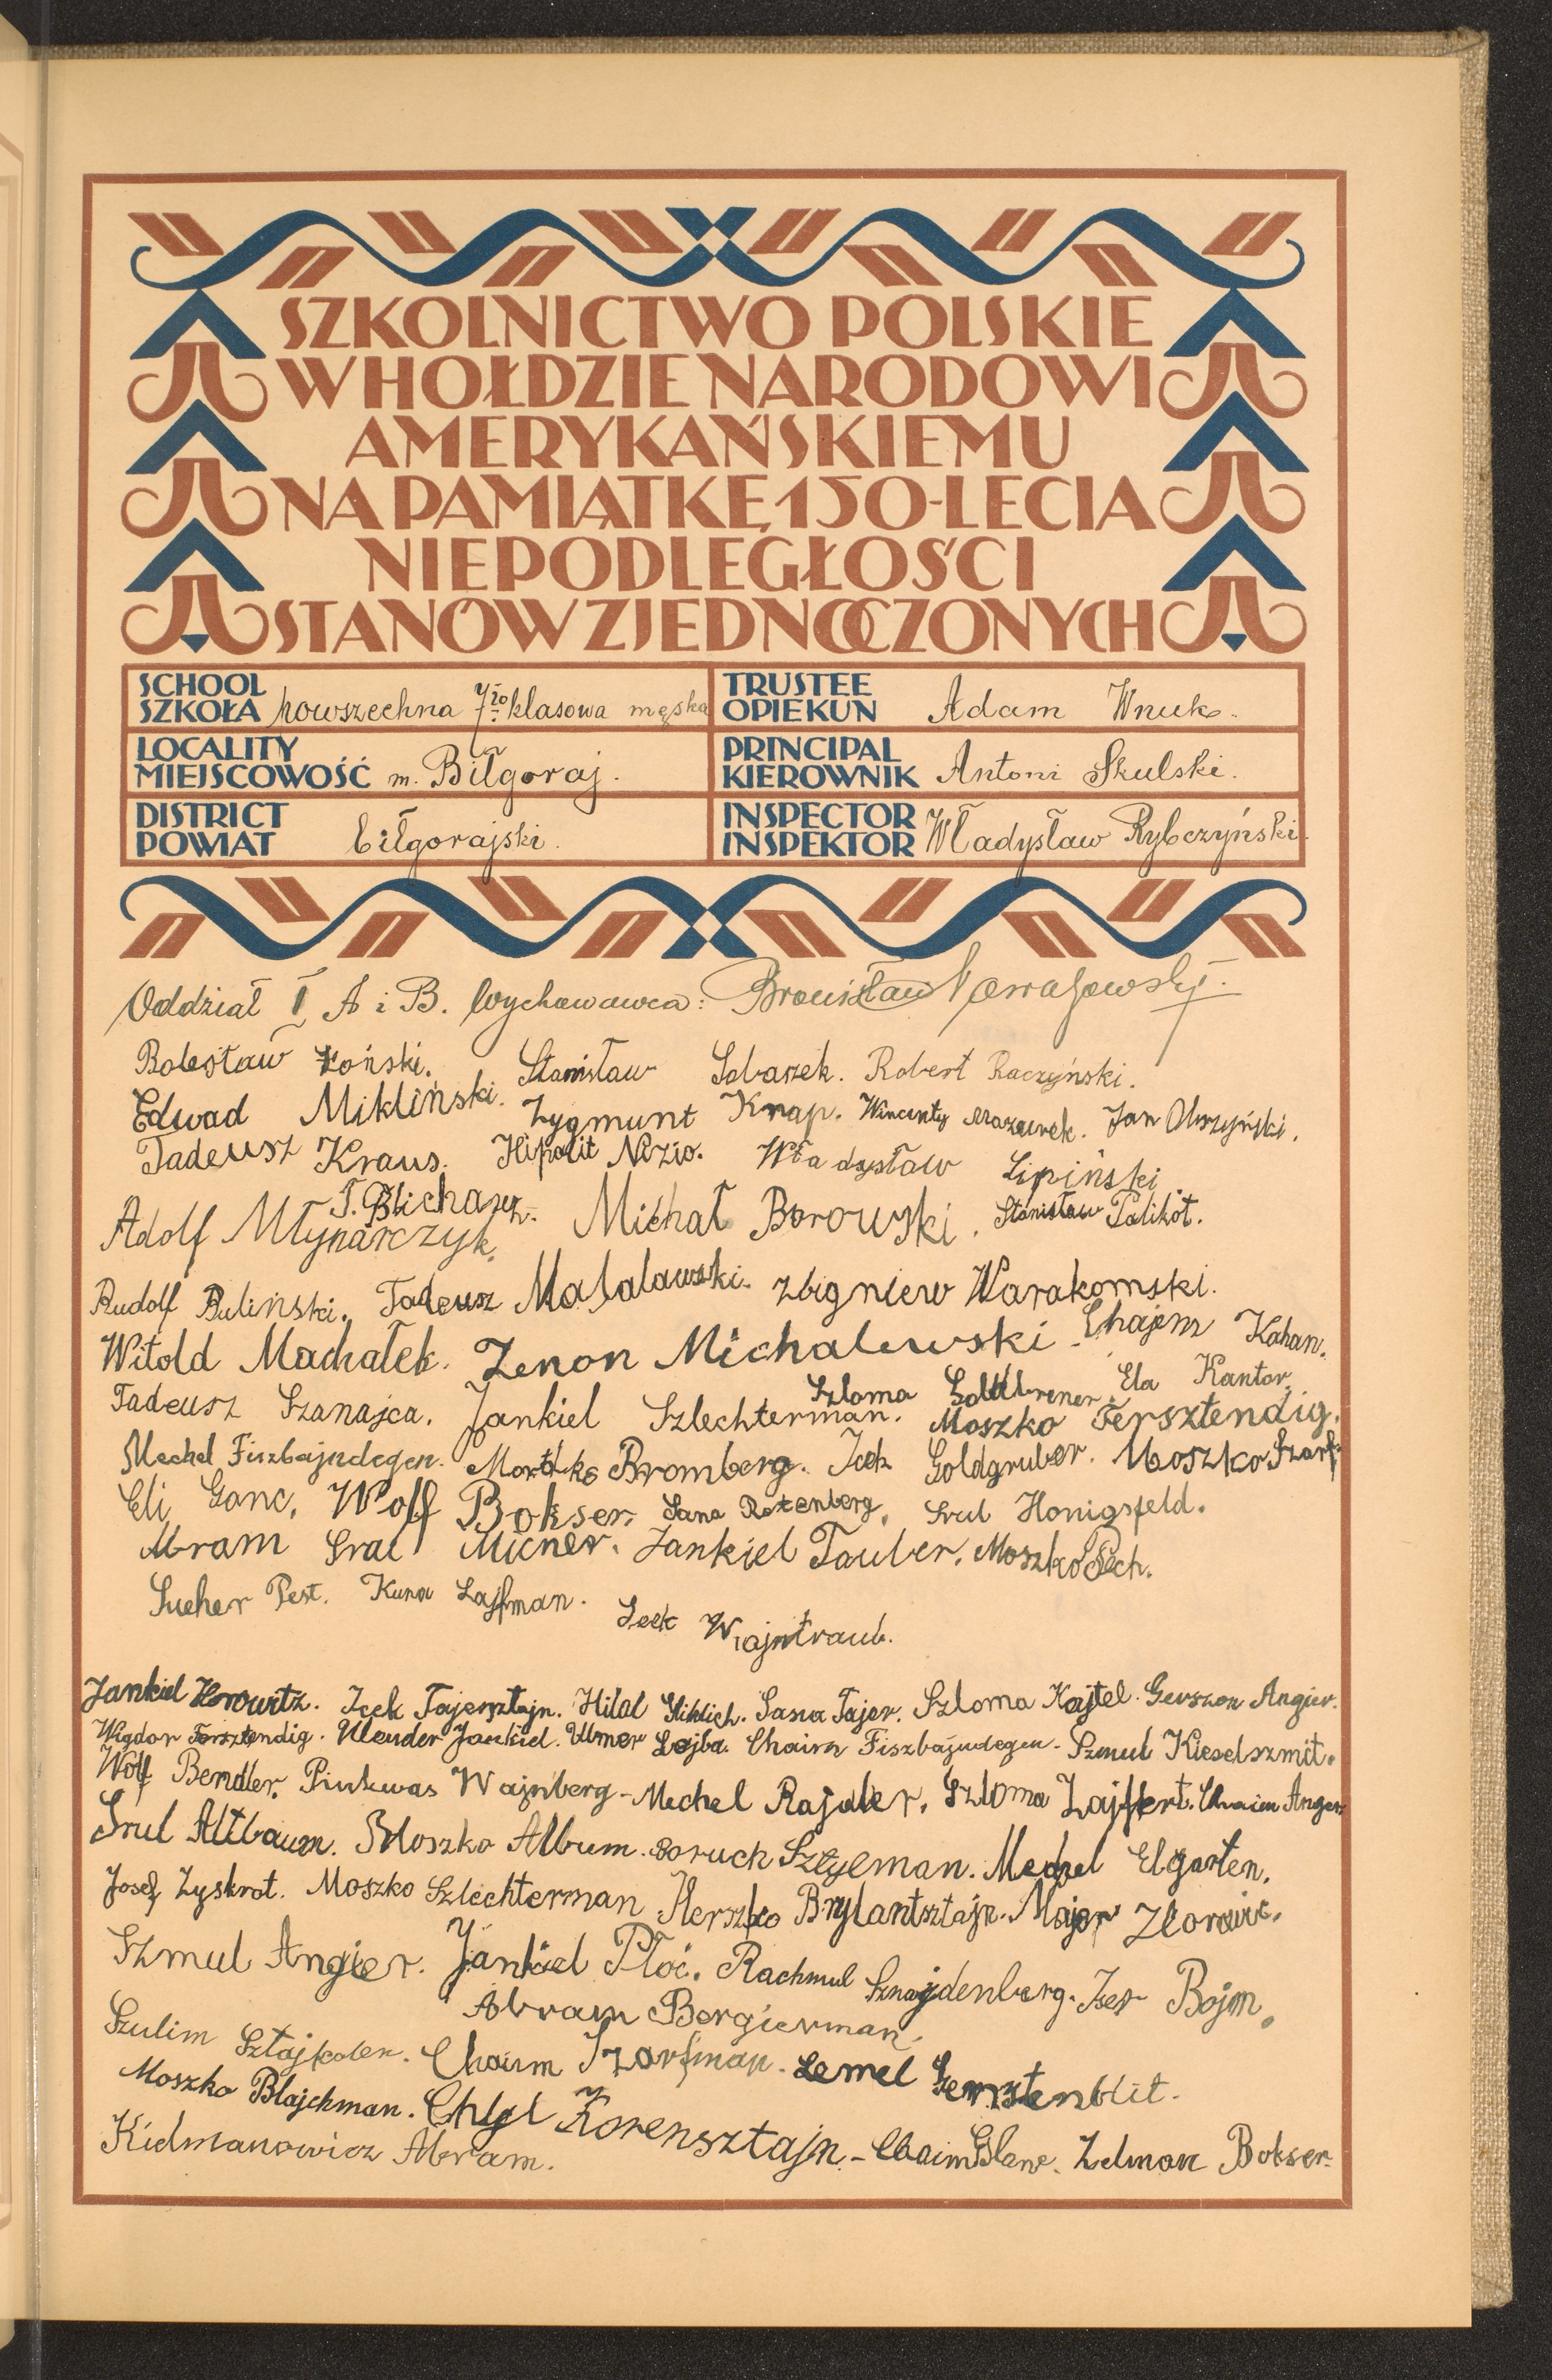 SZKOLNICTWO POLSKIE
W HOŁDZIE NARODOWI
AMERYKAŃSKIEMU
NA PAMIĄTKĘ 150-LECIA
NIEPODLEGŁOŚCI
STANÓW ZJEDNOCZONYCH
SCHOOL
SZKOŁA powszechna 7io klasowa męska
TRUSTEE
OPIEKUN Adam Wnuk.
LOCALITY
MIEJSCOWOŚĆ m. Biłgoraj.
PRINCIPAL
KIEROWNIK Antoni Skulski.
DISTRICT
POWIAT biłgorajski.
INSPECTOR
INSPEKTOR Władysław Rybczyński
Oddział I A i B. Wychowawca: Bronisław
Bolesław Łoński. Stanisław Sobaszek. Robert Raczyński.
Edwad Mikliński. Zygmunt Knap. Wincenty Mazurek. Jan Olszyński.
Tadeusz Kraus. Hipolit Nizio. Władysław Lipiński.
T. Blicharz.
Adolf Młynarczyk. Michał Borowski. Stanisław Palikot.
Rudolf Buliński. Tadeusz Małalawski. Zbigniew Warakomski.
Witold Machałek. Zenon Michalewski. Chajem Kahan.
Szloma Goldbrener. Ela Kantor.
Tadeusz Szanajca. Jankiel Szlechterman. Moszko Fersztendig.
Mechel Fiszbajndegen. Mordko Bromberg. Icek Goldgruber. Moszko Szarf.
Eli Ganc. Wolf Bokser. Sana Rotenberg. Srul Honigsfeld.
Abram Srul Micner. Jankiel Tauber. Moszko Pech.
Sucher Pest. Kuna Lajfman. Icek Wajntraub.
Jankiel Horowitz. Icek Tajersztajn. Hilal Gliklich. Tajer. Szloma Kajtel. Gerszon Angier.
Wigdor Fersztendig. Ulender Jankiel. Ulmer Lejba. Chaim Fiszbajndegen. Szmul Kieselszmit.
Wolf Bendler. Pinkwas Wajnberg. Mechel Rajder. Szloma Zajfert. Chaim Anger
Srul Altbaum. Moszko Album. Boruch Mechel Elgarten.
Josef Zyskrot. Moszko Szlechterman. Herszko Brylantsztajn. Major
Szmul Angier. Jankiel Płoć. Rachmul Sznajdenberg. Iser Bojm.
Abram Bergierman.
Szulim Chaim Szarfman. Lemel Gersztenblit.
Moszko Blajchman. Chyl Korensztajn. Chaim Glanc. Zelman Bokser.
Kielmanowicz Abram.